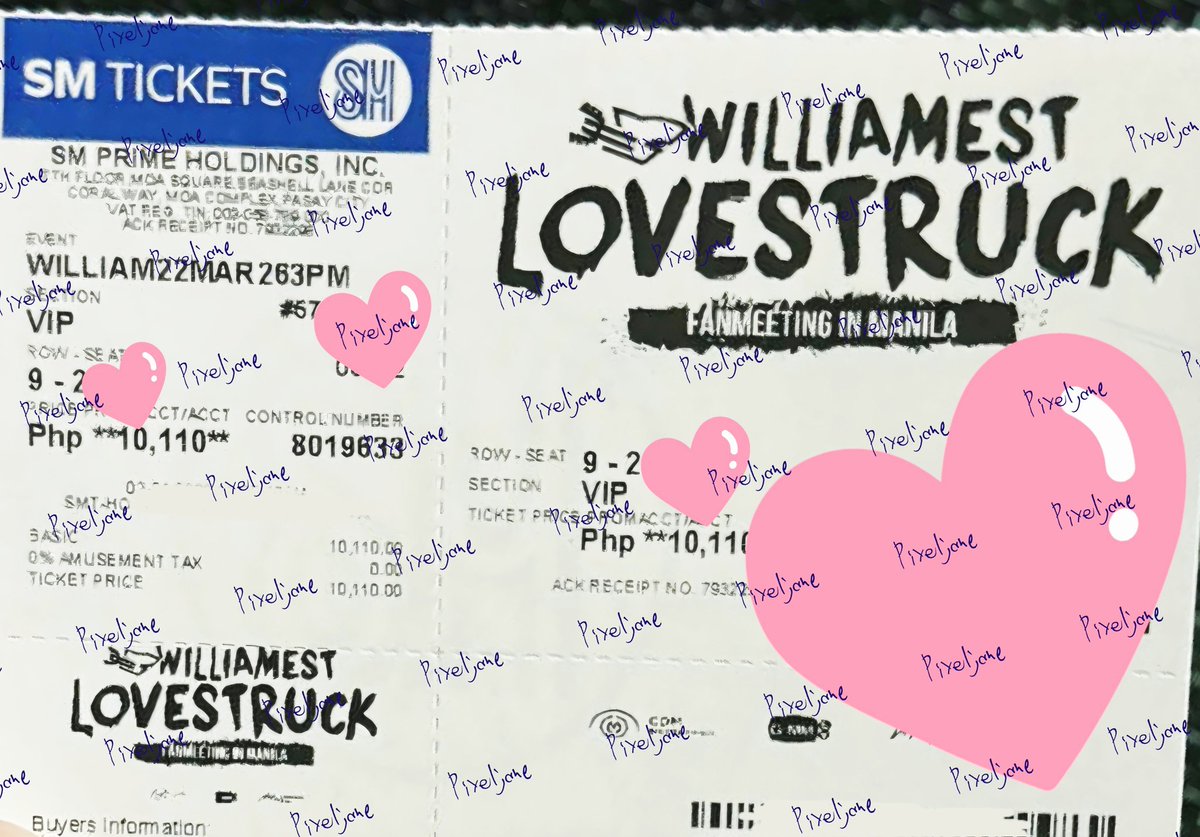 SM TICKETS SM
SM PRIME HOLDINGS, INC.
5TH FLOOR MOA SQUARE, SEASHELL LANE COR
CORAL WAY, MOA COMPLEX, PASAY CITY
VAT REG. TIN
ACK RECEIPT NO.
EVENT
WILLIAM22MAR263PM
SECTION
VIP
ROW - SEAT
9 - 2
CCT/ACCT CONTROL NUMBER
Php **10,110** 8019633
SMT-HO
BASIC 10,110.00
0% AMUSEMENT TAX 0.00
TICKET PRICE 10,110.00
WILLIAMEST
LOVESTRUCK
FANMEETING IN MANILA
Buyers Information
WILLIAMEST
LOVESTRUCK
FANMEETING IN MANILA
ROW - SEAT 9 - 2
SECTION VIP
TICKET PRICE FROM/ACCT/ACCT
Php **10,110
ACK RECEIPT NO. 7932
Pixeljane